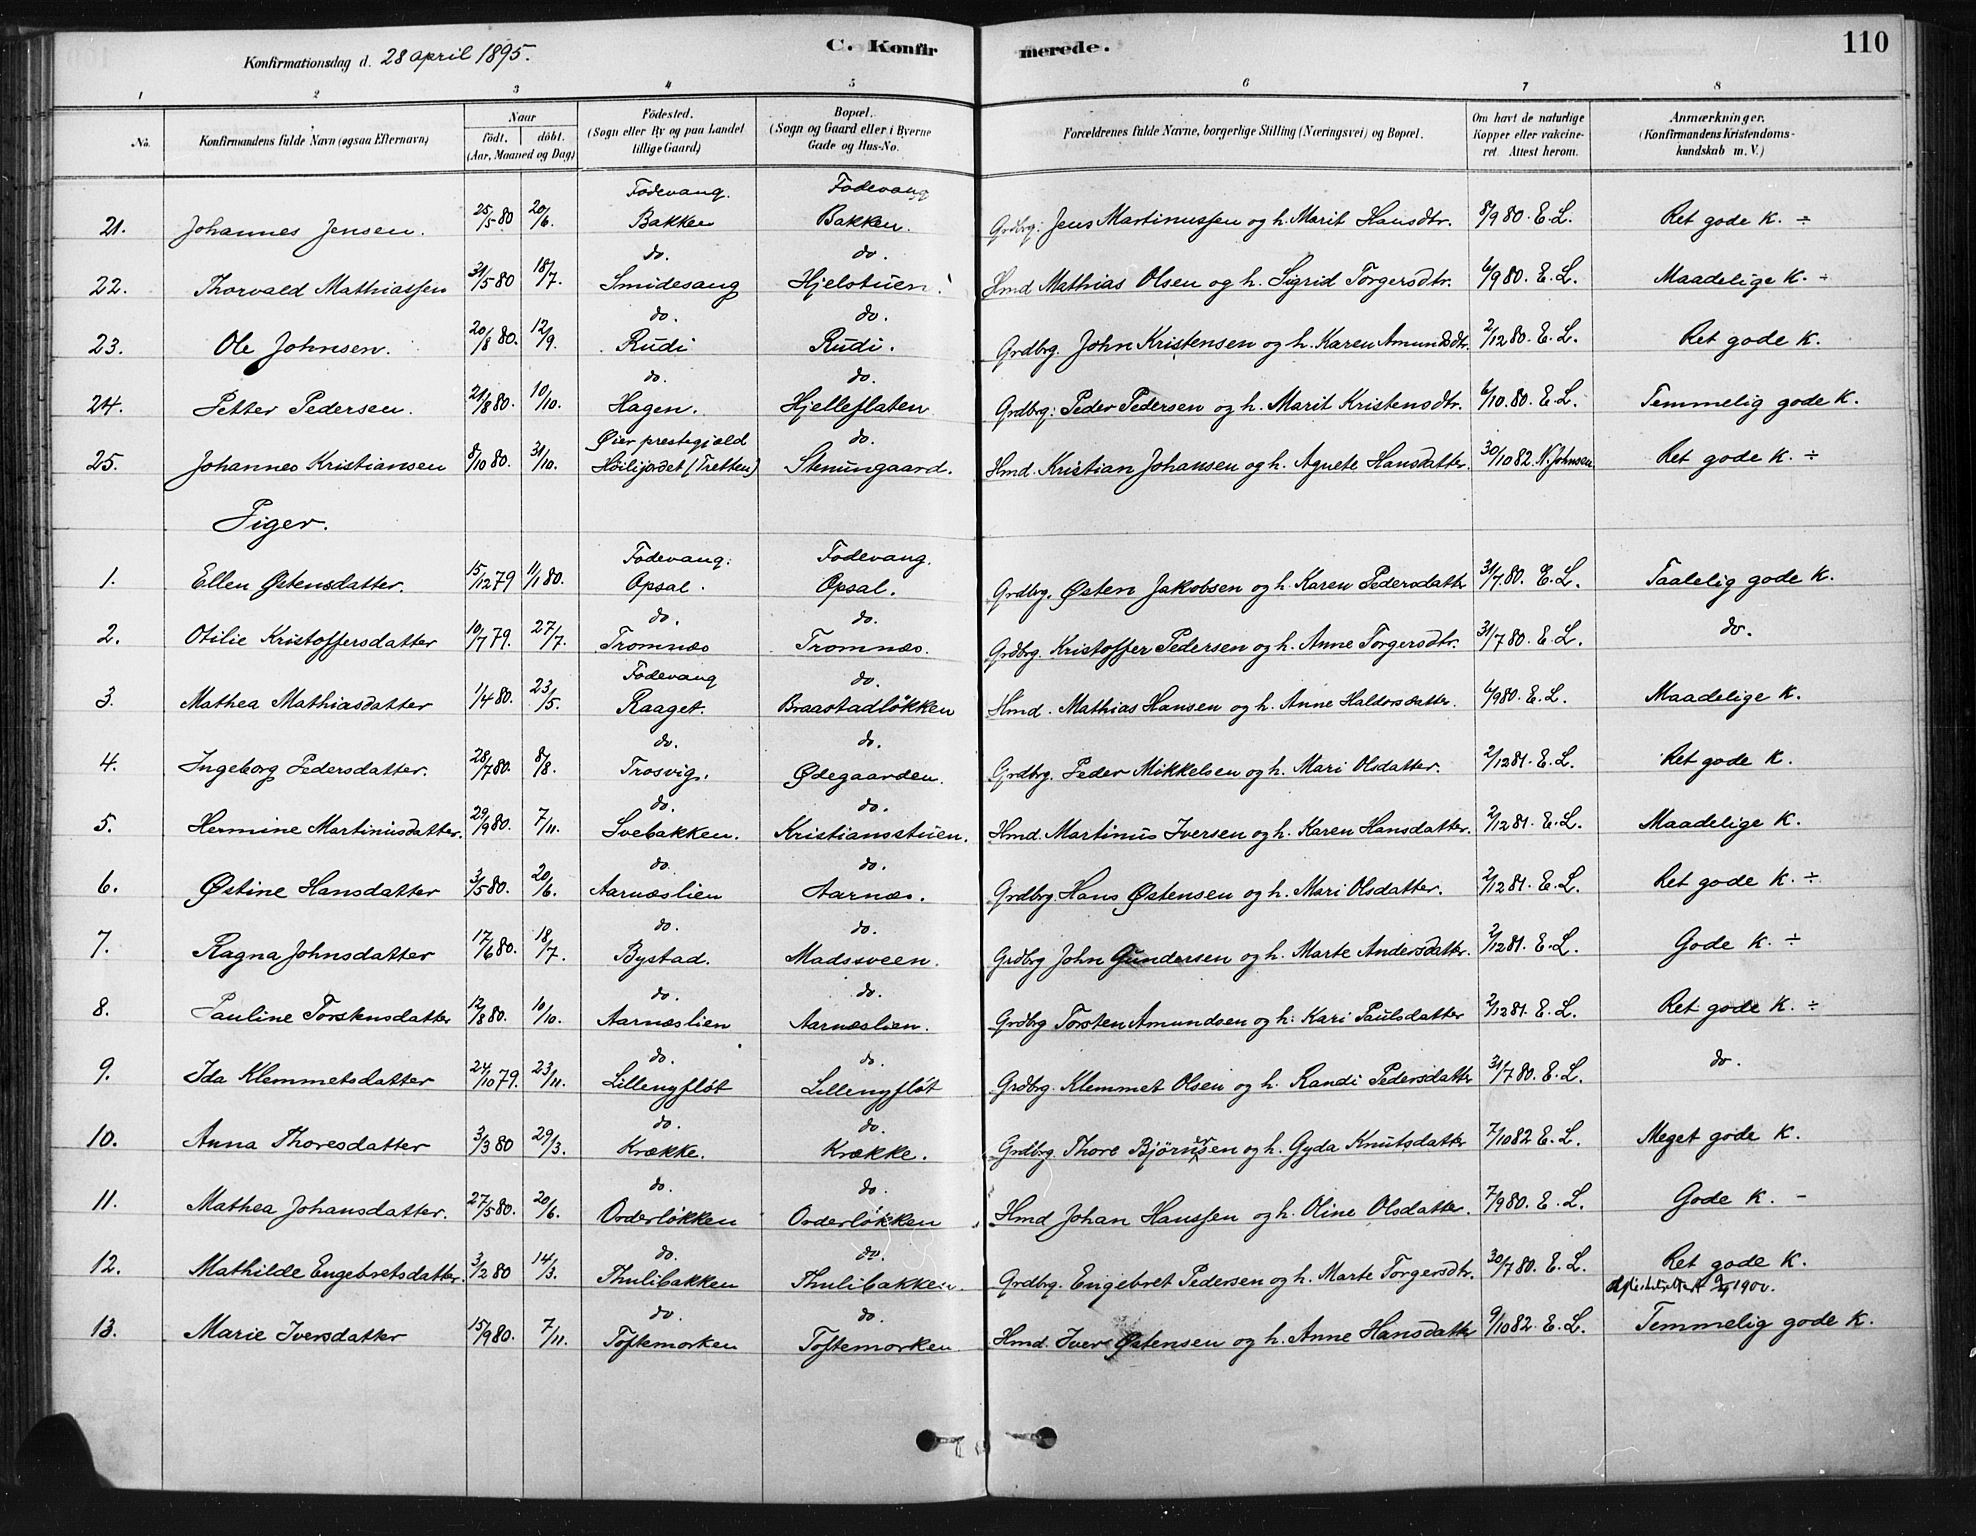 Konfirmationsdag d. 28 april 1895.
C. Konfirmerede.
110
1 2 3 4 5 6 7 8
No. | Konfirmandens fulde Navn (ogsaa Efternavn) | Naar født. døbt. (Aar, Maaned og Dag) | Fødested. (Sogn eller By og paa Landet tillige Gaard) | Bopæl. (Sogn og Gaard eller i Byerne Gade og Hus-No. | Forældrenes fulde Navne, borgerlige Stilling (Næringsvei) og Bopæl. | Om havt de naturlige Kopper eller vakcineret. Attest herom. | Anmærkninger. (Konfirmandens Kristendomskundskab m. V.)
21. Johannes Jensen. 25/5 80 20/6. Fodevang. Bakken Fodevang Bakken. Grdbrg. Jens Martinussen og h. Marit Hansdtr. 8/9 80. E. L. Ret gode K. ÷
22. Thorvald Mathiassen 31/5 80 18/7. do. Smidesang do. Hjelstuen. Hmd Mathias Olsen og h. Sigrid Torgersdtr. 6/9 80. E. L. Maadelige K. -
23. Ole Johnsen. 20/8 80. 12/9. do. Rudi do. Rudi. Grdbrg. John Kristensen og h. Karen Amundsdtr. 2/12 80. E. L. Ret gode K.
24. Petter Pedersen. 21/8 80. 10/10. do. Hagen. do. Hjelleflaten Grdbrg. Peder Pedersen og h. Marit Kristensdtr. 6/10. 80. E. L. Temmelig gode K.
25. Johannes Kristiansen 8/10 80. 31/10. Øier prestegjæld Høiligjordet (Tretten) do. Stenungaard. Hmd. Kristian Johansen og h. Agnete Hansdatter. 30/10 82. N. Johnsen Ret gode K. ÷
Piger.
1. Ellen Østensdatter. 15/12 79 11/1 80. Fodevang. Opsal. Fodevang. Opsal. Grdbrg. Østen Jakobsen og h. Karen Pedersdatter 31/7. 80. E. L. Taalelig gode K.
2. Otilie Kristoffersdatter 10/7 79. 27/7. do. Tromnæs do. Tromnæs. Grdbrg. Kristoffer Pedersen og h. Anne Torgersdtr. 31/7 80. E. L. do.
3. Mathea Mathiasdatter 1/4 80. 23/5. Fodevang Raaget. do. Braastadløkken Hmd. Mathias Hansen og h. Anne Haldorsdatter. 6/9 80. E. L. Maadelige K.
4. Ingeborg Pedersdatter. 28/7 80. 8/8. do. Trosvig. do. Ødegaarden. Grdbrg. Peder Mikkelsen og h. Mari Olsdatter. 2/12 81. E. L. Ret gode K.
5. Hermine Martinusdatter. 29/9 80. 7/11. do. Svebakken. do. Kristiansstuen. Hmd. Martinus Iversen og h. Karen Hansdatter. 2/12 81. E. L. Maadelige K.
6. Østine Hansdatter 3/5 80. 20/6. do. Aarnæslien do. Aarnæs. Grdbrg. Hans Østensen og h. Mari Olsdatter. 2/12 81. E. L. Ret gode K. ÷
7. Ragna Johnsdatter 17/6 80. 18/7. do. Bystad. do. Madssveen. Grdbrg John Gundersen og h. Marte Andersdatter. 2/12 81. E. L. Gode K. ÷
8. Pauline Torstensdatter 12/8 80. 10/10. do. Aarnæslien do. Aarnæslien. Grdbrg Torsten Amundsen og h. Kari Paulsdatter 2/12 81. E. L. Ret gode K. ÷
9. Ida Klemmetsdatter 24/10 79. 23/11. do. Lillenyfløt do. Lillenyfløt Grdbrg. Klemmet Olsen og h. Randi Pedersdatter 31/7 80. E. L. do.
10. Anna Thoresdatter 3/3 80 29/3. do. Krække. do. Krække. Grdbrg. Thore Bjørnersen og h. Gyda Knutsdatter 7/10 82 E. L. Meget gode K.
11. Mathea Johansdatter. 27/5 80. 20/6. do. Orderløkken do. Orderløkken Hmd Johan Hanssen og h. Oline Olsdatter. 7/9 80. E. L. Gode K. -
12. Mathilde Engebretsdatter. 3/2 80 14/3. do. Thulibakken do. Thulibakken. Grdbrg. Engebret Pedersen og h. Marte Torgersdtr. 30/7 80. E. L. Ret gode K.
1900.
13. Marie Iversdatter 15/9 80. 7/11. do. Toftemorken do. Toftemorken. Hmd. Iver Østensen og h. Anne Hansdatter 9/10 82. E. L. Temmelig gode K.